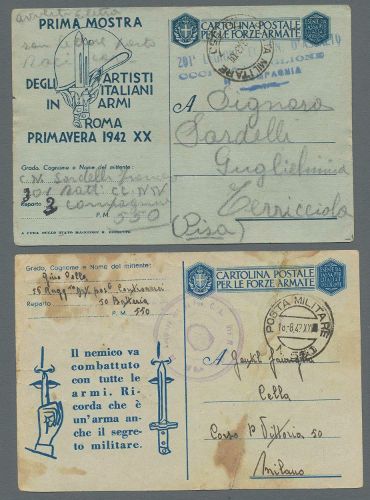 PRIMA MOSTRA
DEGLI ARTISTI
ITALIANI
IN ARMI
ROMA
PRIMAVERA 1942 XX
Grado, Cognome e Nome del mittente:
C.N. Sardelli
201 Batt. CC. NN.
Reparto 3 Compagnia
P. M. 550
A CURA DELLO STATO MAGGIORE R. ESERCITO
CARTOLINA POSTALE
PER LE FORZE ARMATE
POSTA MILITARE
A Signora
Sardelli
Guglielmina
Terricciola
(Pisa)
Grado, Cognome e Nome del mittente:
Gino Cella
Reparto 50 Batteria
P. M. 550
Il nemico va
combattuto
con tutte le
armi. Ri-
corda che è
un'arma an-
che il segre-
to militare.
CARTOLINA POSTALE
PER LE FORZE ARMATE
POSTA MILITARE
A Gentil famiglia
Cella
Corso P. Vittoria 50
Milano